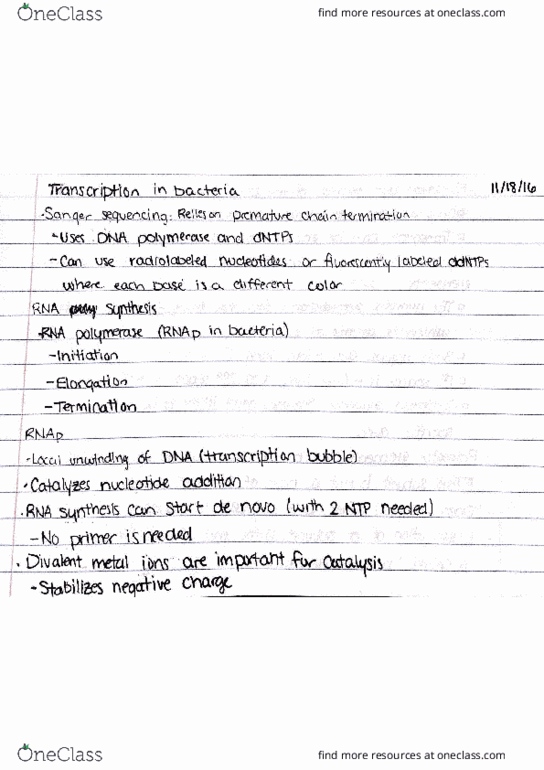 OneClass
find more resources at oneclass.com
Transcription in bacteria 11/18/16
·Sanger sequencing: Relies on premature chain termination
-Uses DNA polymerase and dNTPs
-Can use radiolabeled nucleotides or fluorescently labeled ddNTPs
where each base is a different color
RNA synthesis
·RNA polymerase (RNAp in bacteria)
-Initiation
-Elongation
-Termination
RNAp
·Local unwinding of DNA (transcription bubble)
·Catalyzes nucleotide addition
·RNA synthesis can start de novo (with 2 NTP needed)
-No primer is needed
· Divalent metal ions are important for catalysis
-Stabilizes negative charge
OneClass
find more resources at oneclass.com